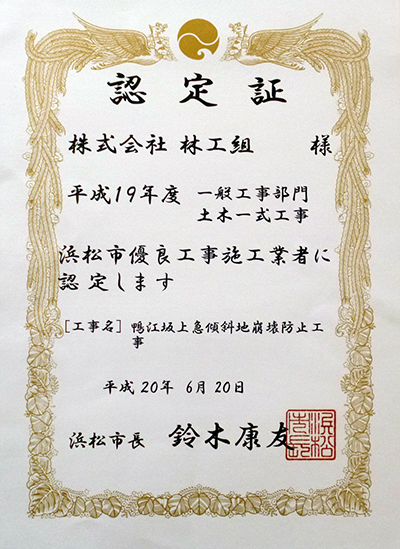 認定証
株式会社 林工組 様
平成19年度 一般工事部門
土木一式工事
浜松市優良工事施工業者に
認定します
[工事名] 鴨江坂上急傾斜地崩壊防止工
事
平成20年 6月20日
浜松市長 鈴木康友
浜松市長